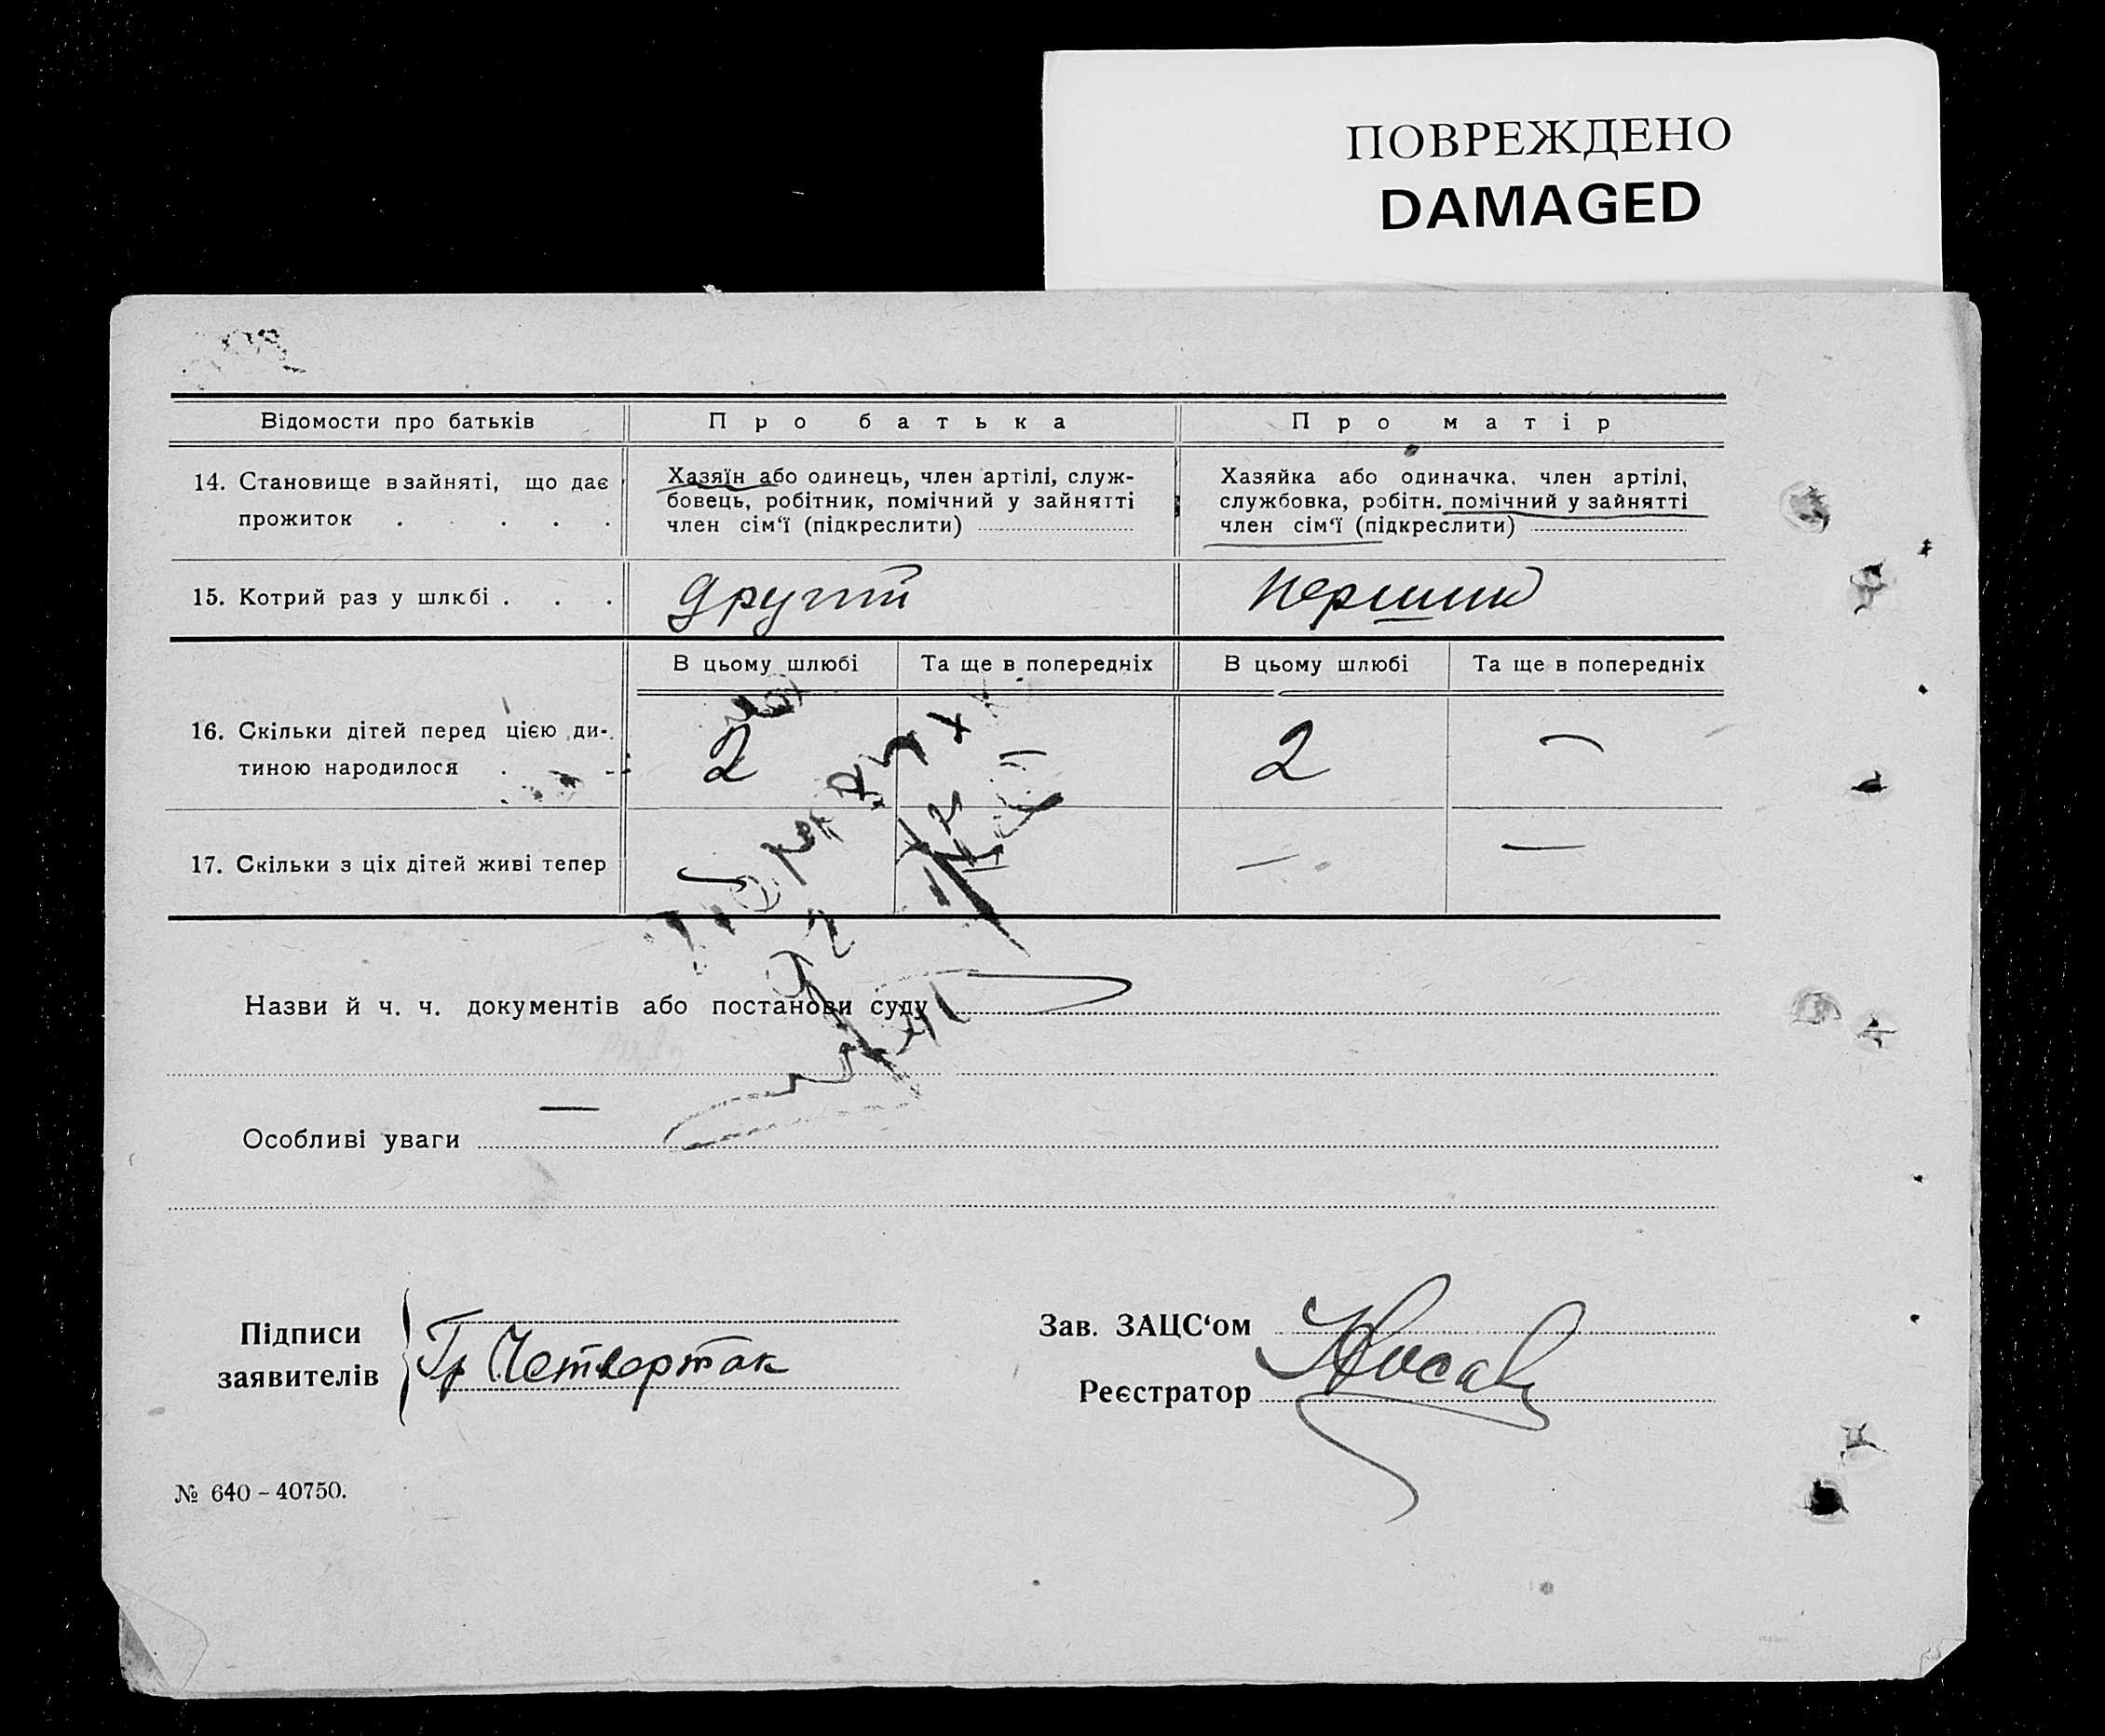 ПОВРЕЖДЕНО
DAMAGED
Відомости про батьків
Про батька
Про матір
14. Становище в зайняті, що дає
прожиток . . . . .
Хазяїн або одинець, член артілі, служ-
бовець, робітник, помічний у зайнятті
член сім‘ї (підкреслити)
Хазяйка або одиначка, член артілі,
службовка, робітн. помічний у зайнятті
член сім‘ї (підкреслити)
15. Котрий раз у шлюбі . . .
другий
перший
В цьому шлюбі
Та ще в попередніх
В цьому шлюбі
Та ще в попередніх
16. Скільки дітей перед цією ди-
тиною народилося
2
—
2
—
17. Скільки з ціх дітей живі тепер
—
—
Назви й ч. ч. документів або постанови суду
Особливі уваги —
Підписи
заявителів
Гр Четвертак
Зав. ЗАЦС‘ом
Реєстратор
№ 640 – 40750.